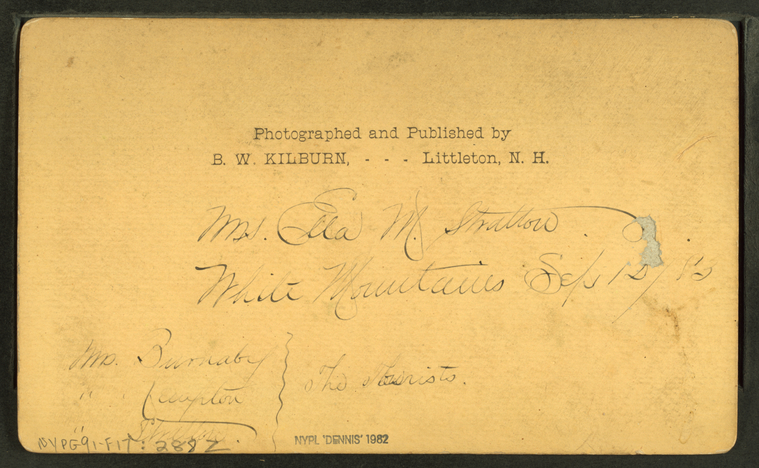 Photographed and Published by
B. W. KILBURN, - - - Littleton, N. H.
Mrs. Ella M. Stratton
White Mountains Sep
Mrs. Burnaby
" Compton
" Stratton
The
NYPG91-F17: 2882
NYPL 'DENNIS' 1982